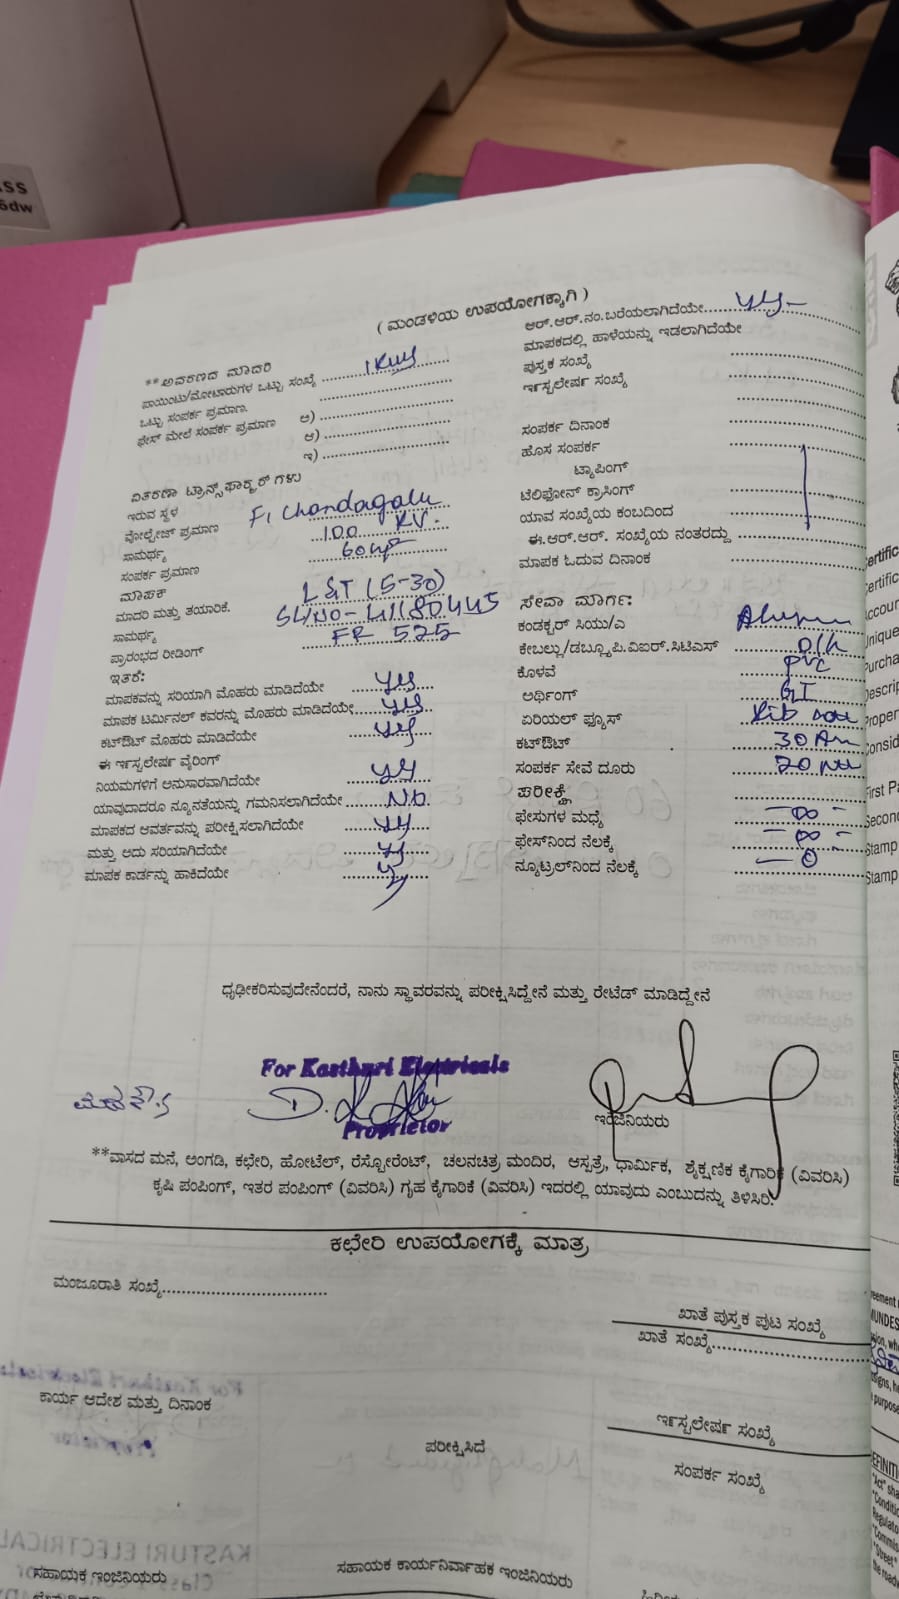 ( ಮಂಡಳಿಯ ಉಪಯೋಗಕ್ಕಾಗಿ )
**ಅವಕಣದ ಮಾದರಿ
ಪಾಯಿಂಟು/ಮೋಟಾರುಗಳ ಒಟ್ಟು ಸಂಖ್ಯೆ 1 KW
ಒಟ್ಟು ಸಂಪರ್ಕ ಪ್ರಮಾಣ.
ಫೇಸ್ ಮೇಲೆ ಸಂಪರ್ಕ ಪ್ರಮಾಣ ಅ)
ಆ)
ಇ)
ವಿತರಣಾ ಟ್ರಾನ್ಸ್‌ಫಾರ್‍ಮರ್ ಗಳು
ಇರುವ ಸ್ಥಳ F1 Chandagalu
ವೋಲ್ಟೇಜ್ ಪ್ರಮಾಣ 100 KV.
ಸಾಮರ್ಥ್ಯ
ಸಂಪರ್ಕ ಪ್ರಮಾಣ
ಮಾಪಕ L&T (5-30)
ಮಾದರಿ ಮತ್ತು ತಯಾರಿಕೆ. SL/NO-
ಸಾಮರ್ಥ್ಯ FR 525
ಪ್ರಾರಂಭದ ರೀಡಿಂಗ್
ಇತರೆ:
ಮಾಪಕವನ್ನು ಸರಿಯಾಗಿ ಮೊಹರು ಮಾಡಿದೆಯೇ yes
ಮಾಪಕ ಟರ್ಮಿನಲ್ ಕವರನ್ನು ಮೊಹರು ಮಾಡಿದೆಯೇ yes
ಕಟ್‌ಔಟ್ ಮೊಹರು ಮಾಡಿದೆಯೇ yes
ಈ ಇನ್ಸ್ಟಲೇಷನ್ ವೈರಿಂಗ್
ನಿಯಮಗಳಿಗೆ ಅನುಸಾರವಾಗಿದೆಯೇ yes
ಯಾವುದಾದರೂ ನ್ಯೂನತೆಯನ್ನು ಗಮನಿಸಲಾಗಿದೆಯೇ No.
ಮಾಪಕದ ಆವರ್ತವನ್ನು ಪರೀಕ್ಷಿಸಲಾಗಿದೆಯೇ yes
ಮತ್ತು ಅದು ಸರಿಯಾಗಿದೆಯೇ
ಮಾಪಕ ಕಾರ್ಡನ್ನು ಹಾಕಿದೆಯೇ
ಆರ್.ಆರ್.ನಂ.ಬರೆಯಲಾಗಿದೆಯೇ yes
ಮಾಪಕದಲ್ಲಿ ಹಾಳೆಯನ್ನು ಇಡಲಾಗಿದೆಯೇ
ಪುಸ್ತಕ ಸಂಖ್ಯೆ
ಇನ್ಸ್ಟಲೇಷನ್ ಸಂಖ್ಯೆ
ಸಂಪರ್ಕ ದಿನಾಂಕ
ಹೊಸ ಸಂಪರ್ಕ
ಟ್ಯಾಪಿಂಗ್
ಟೆಲಿಫೋನ್ ಕ್ರಾಸಿಂಗ್
ಯಾವ ಸಂಖ್ಯೆಯ ಕಂಬದಿಂದ
ಈ.ಆರ್.ಆರ್. ಸಂಖ್ಯೆಯ ನಂತರದ್ದು
ಮಾಪಕ ಓದುವ ದಿನಾಂಕ
ಸೇವಾ ಮಾರ್ಗ:
ಕಂಡಕ್ಟರ್ ಸಿಯು/ಎ
ಕೇಬಲ್ಲು/ಡಬ್ಲೂಪಿ.ವಿಐಆರ್.ಸಿಟಿಎಸ್ O/h
ಕೊಳವೆ PVC
ಅರ್ಥಿಂಗ್ GI
ಏರಿಯಲ್ ಫ್ಯೂಸ್
ಕಟ್‌ಔಟ್ 30 Am
ಸಂಪರ್ಕ ಸೇವೆ ದೂರು 20
ಪರೀಕ್ಷೆ
ಫೇಸುಗಳ ಮಧ್ಯೆ – ∞ –
ಫೇಸ್‌ನಿಂದ ನೆಲಕ್ಕೆ – ∞ –
ನ್ಯೂಟ್ರಲ್‌ನಿಂದ ನೆಲಕ್ಕೆ – 0
ಧೃಢೀಕರಿಸುವುದೇನೆಂದರೆ, ನಾನು ಸ್ಥಾವರವನ್ನು ಪರೀಕ್ಷಿಸಿದ್ದೇನೆ ಮತ್ತು ರೇಟೆಡ್ ಮಾಡಿದ್ದೇನೆ
For Kasthuri Electricals
Proprietor
ಇಂಜಿನಿಯರು
**ವಾಸದ ಮನೆ, ಅಂಗಡಿ, ಕಛೇರಿ, ಹೋಟೆಲ್, ರೆಸ್ಟೋರೆಂಟ್, ಚಲನಚಿತ್ರ ಮಂದಿರ, ಆಸ್ಪತ್ರೆ, ಧಾರ್ಮಿಕ, ಶೈಕ್ಷಣಿಕ ಕೈಗಾರಿಕೆ (ವಿವರಿಸಿ)
ಕೃಷಿ ಪಂಪಿಂಗ್, ಇತರ ಪಂಪಿಂಗ್ (ವಿವರಿಸಿ) ಗೃಹ ಕೈಗಾರಿಕೆ (ವಿವರಿಸಿ) ಇದರಲ್ಲಿ ಯಾವುದು ಎಂಬುದನ್ನು ತಿಳಿಸಿರಿ.
ಕಛೇರಿ ಉಪಯೋಗಕ್ಕೆ ಮಾತ್ರ
ಮಂಜೂರಾತಿ ಸಂಖ್ಯೆ
ಖಾತೆ ಪುಸ್ತಕ ಪುಟ ಸಂಖ್ಯೆ
ಖಾತೆ ಸಂಖ್ಯೆ
ಕಾರ್ಯ ಆದೇಶ ಮತ್ತು ದಿನಾಂಕ
ಇನ್ಸ್ಟಲೇಷನ್ ಸಂಖ್ಯೆ
ಪರೀಕ್ಷಿಸಿದೆ
ಸಂಪರ್ಕ ಸಂಖ್ಯೆ
ಸಹಾಯಕ ಇಂಜಿನಿಯರು
ಸಹಾಯಕ ಕಾರ್ಯನಿರ್ವಾಹಕ ಇಂಜಿನಿಯರು